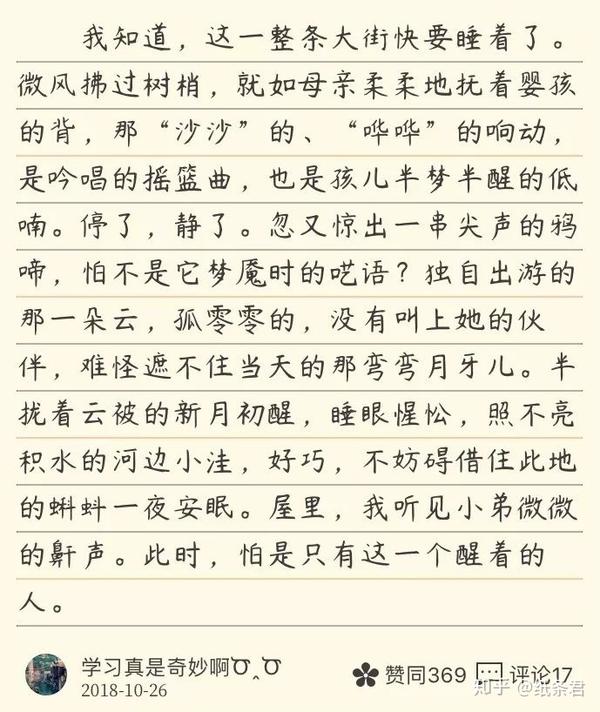 我知道，这一整条大街快要睡着了。
微风拂过树梢，就如母亲柔柔地抚着婴孩
的背，那“沙沙”的、“哗哗”的响动，
是吟唱的摇篮曲，也是孩儿半梦半醒的低
喃。停了，静了。忽又惊出一串尖声的鸦
啼，怕不是它梦魇时的呓语？独自出游的
那一朵云，孤零零的，没有叫上她的伙
伴，难怪遮不住当天的那弯弯月牙儿。半
拢着云被的新月初醒，睡眼惺忪，照不亮
积水的河边小洼，好巧，不妨碍借住此地
的蝌蚪一夜安眠。屋里，我听见小弟微微
的鼾声。此时，怕是只有这一个醒着的
人。
学习真是奇妙啊
2018-10-26
赞同369 评论17
知乎 @纸条君